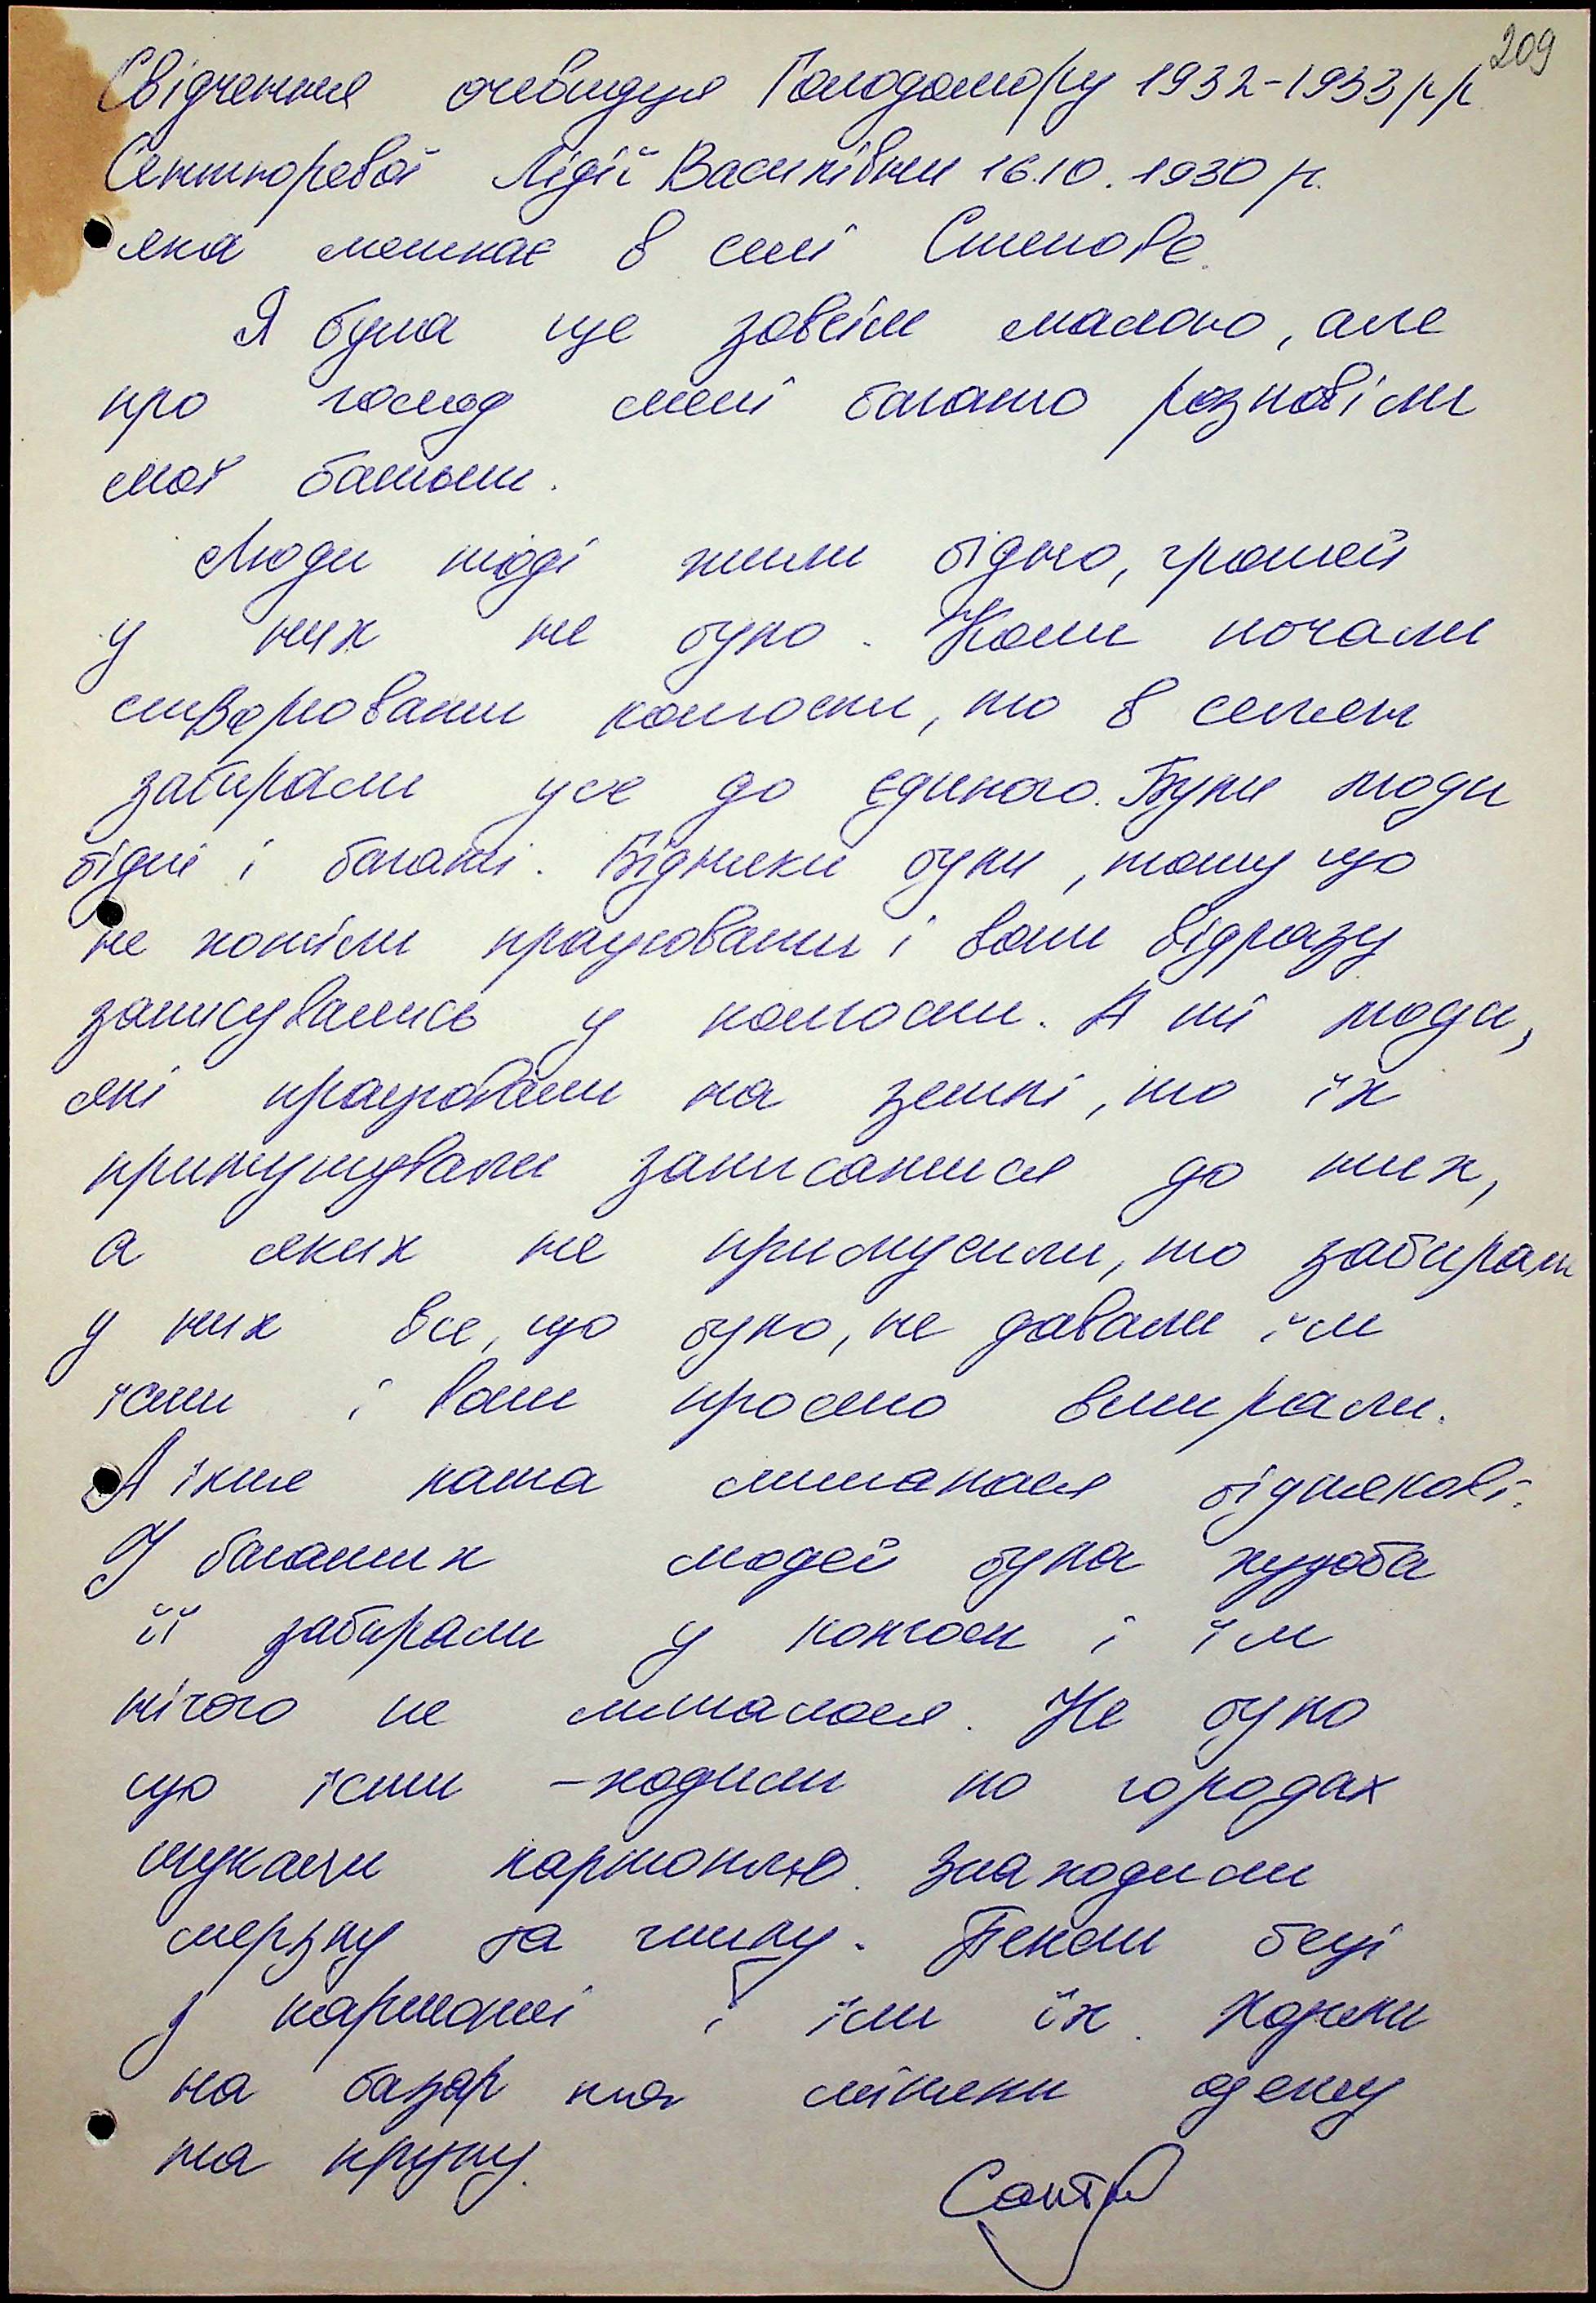 209
Свідчення очевидця Голодомору 1932-1933 рр
Лідії Василівни 16.10.1930 р.
яка мешкає в селі Степове.
Я була ще зовсім малою, але
про голод мені багато розповіли
мої батьки.
Люди тоді жили бідно, грошей
у них не було. Коли почали
створювати колгоспи, то в селян
забирали усе до єдиного. Були люди
бідні і багаті. Бідняки були, тому що
не хотіли працювати і вони відразу
записувались у колгоспи. А ті люди,
які працювали на землі, то їх
примушували записатися до них,
а яких не примусили, то забирали
у них все, що було, не давали їм
їсти і вони просто вмирали.
А їхня хата лишалася біднякові.
У багатих людей була худоба
її забирали у колгосп і їм
нічого не лишалося. Не було
що їсти - ходили по городах
шукали картоплю. Знаходили
мерзлу та гнилу. Пекли
з картоплі і їли їх. Ходили
на базар та міняли одежу
на крупу.